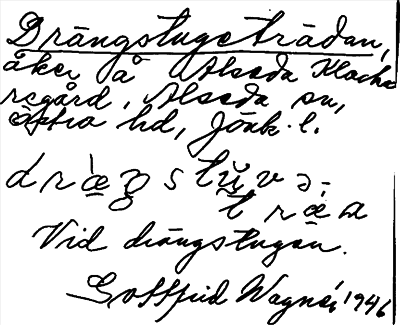 Drängstugeträdan,
åker å Alseda Klocka
regård, Alseda sn,
Östra hd, Jönk. l.
Vid drängstugan.
Gottfrid Wagnér 1946